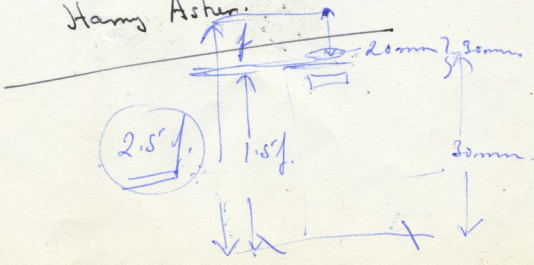 Harry Asher.
f
20mm ? 30mm
2.5 f.
1.5 f.
30mm